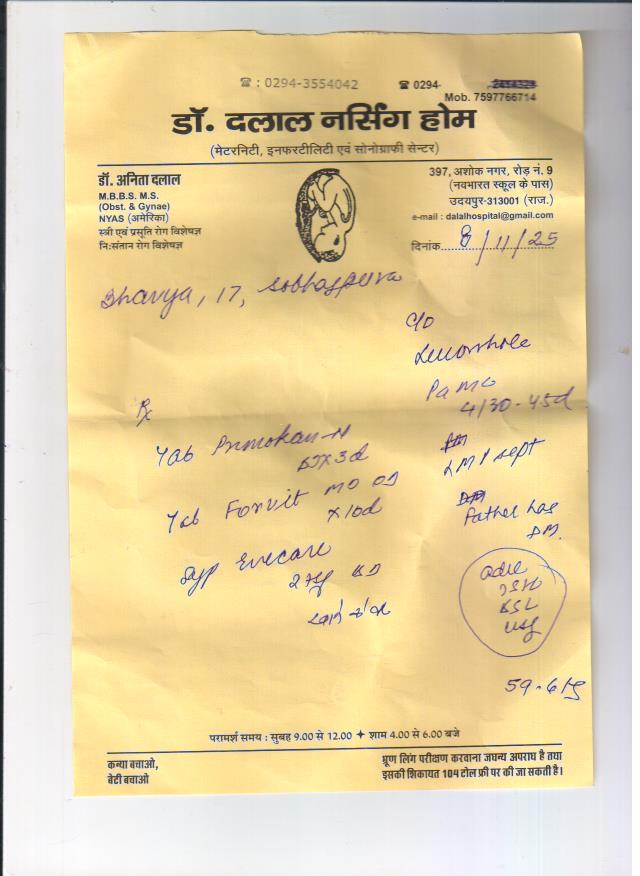 ☎ : 0294-3554042 ☎ 0294-
Mob. 7597766714
डॉ. दलाल नर्सिंग होम
(मेटरनिटी, इनफरटीलिटी एवं सोनोग्राफी सेन्टर)
डॉ. अनिता दलाल
M.B.B.S. M.S.
(Obst. & Gynae)
NYAS (अमेरिका)
स्त्री एवं प्रसूति रोग विशेषज्ञ
नि:संतान रोग विशेषज्ञ
397, अशोक नगर, रोड़ नं. 9
(नवभारत स्कूल के पास)
उदयपुर-313001 (राज.)
e-mail : dalalhospital@gmail.com
दिनांक 8/11/25
Bhavya, 17,
c/o
Pa mc
4/30-45d
LMP sept
Father has
DM.
Rx
Tab
BDX3d
Tab Forvit MO OD
X10d
Syp Evecare
2 tsf BD
USG
59.6 kg
परामर्श समय : सुबह 9.00 से 12.00 ✦ शाम 4.00 से 6.00 बजे
कन्या बचाओ,
बेटी बचाओ
भ्रूण लिंग परीक्षण करवाना जघन्य अपराध है तथा
इसकी शिकायत 104 टोल फ्री पर की जा सकती है।